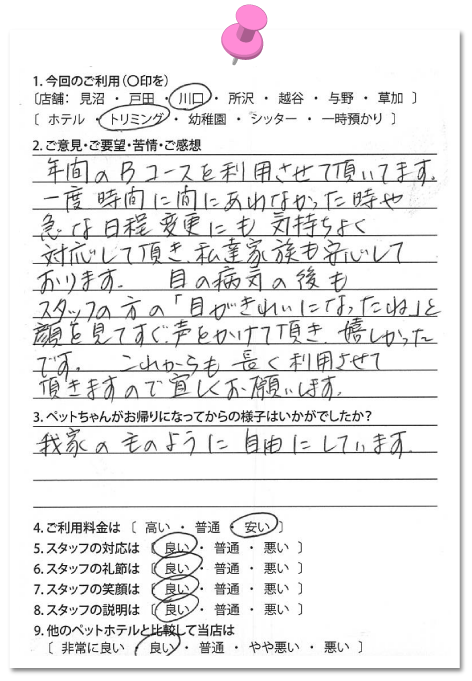 1. 今回のご利用(〇印を)
〔店舗: 見沼 ・ 戸田 ・ 川口 ・ 所沢 ・ 越谷 ・ 与野 ・ 草加 〕
〔 ホテル ・ トリミング ・ 幼稚園 ・ シッター ・ 一時預かり 〕
2. ご意見・ご要望・苦情・ご感想
年間のBコースを利用させて頂いてます。
一度時間に間にあわなかった時や
急な日程変更にも気持ちよく
対応して頂き、私達家族も安心して
おります。 目の病気の後も
スタッフの方の「目がきれいになったね」と
顔を見てすぐ声をかけて頂き、嬉しかった
です。 これからも長く利用させて
頂きますので宜しくお願いします。
3. ペットちゃんがお帰りになってからの様子はいかがでしたか?
我家の主のように自由にしています。
4. ご利用料金は 〔 高い ・ 普通 ・ 安い 〕
5. スタッフの対応は 〔 良い ・ 普通 ・ 悪い 〕
6. スタッフの礼節は 〔 良い ・ 普通 ・ 悪い 〕
7. スタッフの笑顔は 〔 良い ・ 普通 ・ 悪い 〕
8. スタッフの説明は 〔 良い ・ 普通 ・ 悪い 〕
9. 他のペットホテルと比較して当店は
〔 非常に良い ・ 良い ・ 普通 ・ やや悪い ・ 悪い 〕